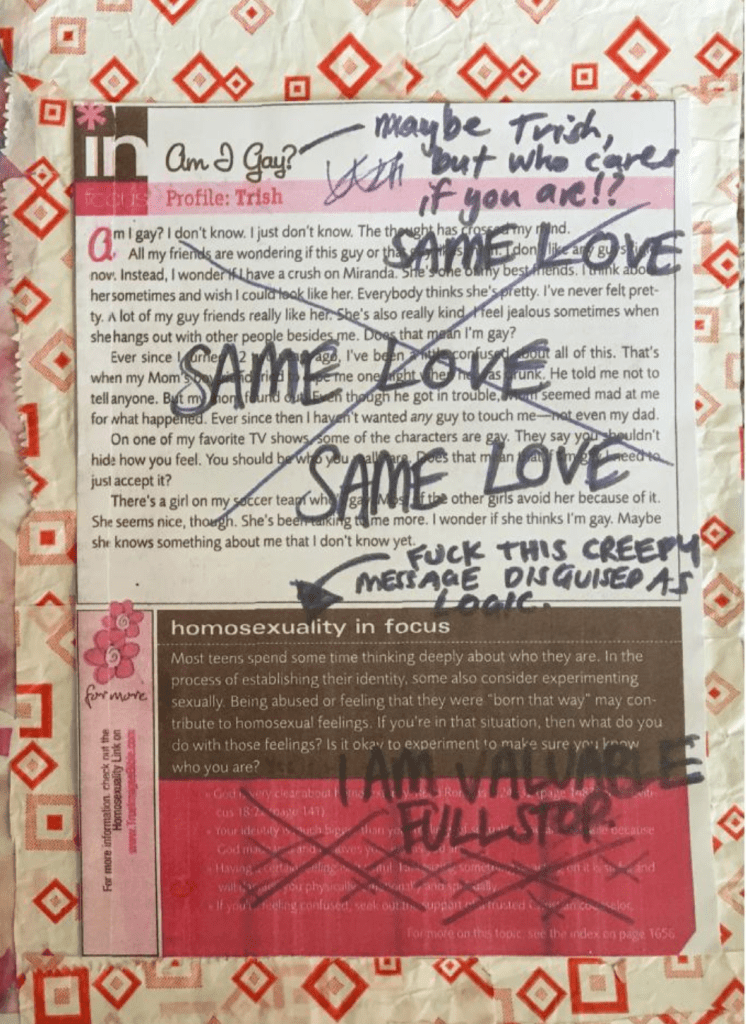 in
focus
Am I Gay?
maybe Trish,
but who cares
if you are!?
Profile: Trish
Am I gay? I don't know. I just don't know. The thought has crossed my mind.
All my friends are wondering if this guy or that I don't like any guys
now. Instead, I wonder if I have a crush on Miranda. She's one of my best friends. I think about
her sometimes and wish I could look like her. Everybody thinks she's pretty. I've never felt pret-
ty. A lot of my guy friends really like her. She's also really kind. I feel jealous sometimes when
she hangs out with other people besides me. Does that mean I'm gay?
Ever since I turned ago, I've been a little confused about all of this. That's
when my Mom's me one night when he was drunk. He told me not to
tell anyone. But my mom found out. Even though he got in trouble, seemed mad at me
for what happened. Ever since then I haven't wanted any guy to touch me—not even my dad.
On one of my favorite TV shows, some of the characters are gay. They say you shouldn't
hide how you feel. You should be who you really are. Does that mean that I need to
just accept it?
There's a girl on my soccer team who's gay. Most of the other girls avoid her because of it.
She seems nice, though. She's been talking to me more. I wonder if she thinks I'm gay. Maybe
she knows something about me that I don't know yet.
SAME LOVE
SAME LOVE
SAME LOVE
FUCK THIS CREEPY
MESSAGE DISGUISED AS
LOGIC.
for more
For more information, check out the
Homosexuality Link on
homosexuality in focus
Most teens spend some time thinking deeply about who they are. In the
process of establishing their identity, some also consider experimenting
sexually. Being abused or feeling that they were "born that way" may con-
tribute to homosexual feelings. If you're in that situation, then what do you
do with those feelings? Is it okay to experiment to make sure you know
who you are?
I AM VALUABLE
FULLSTOP.
God very clear about page
cus 18:22 (page 141)
Your identity is much bigger than because
God made and loves you
Having on it is and
will you physically, emotionally, and spiritually.
If you're feeling confused, seek out the support of a trusted Christian counselor.
For more on this topic, see the index on page 1656